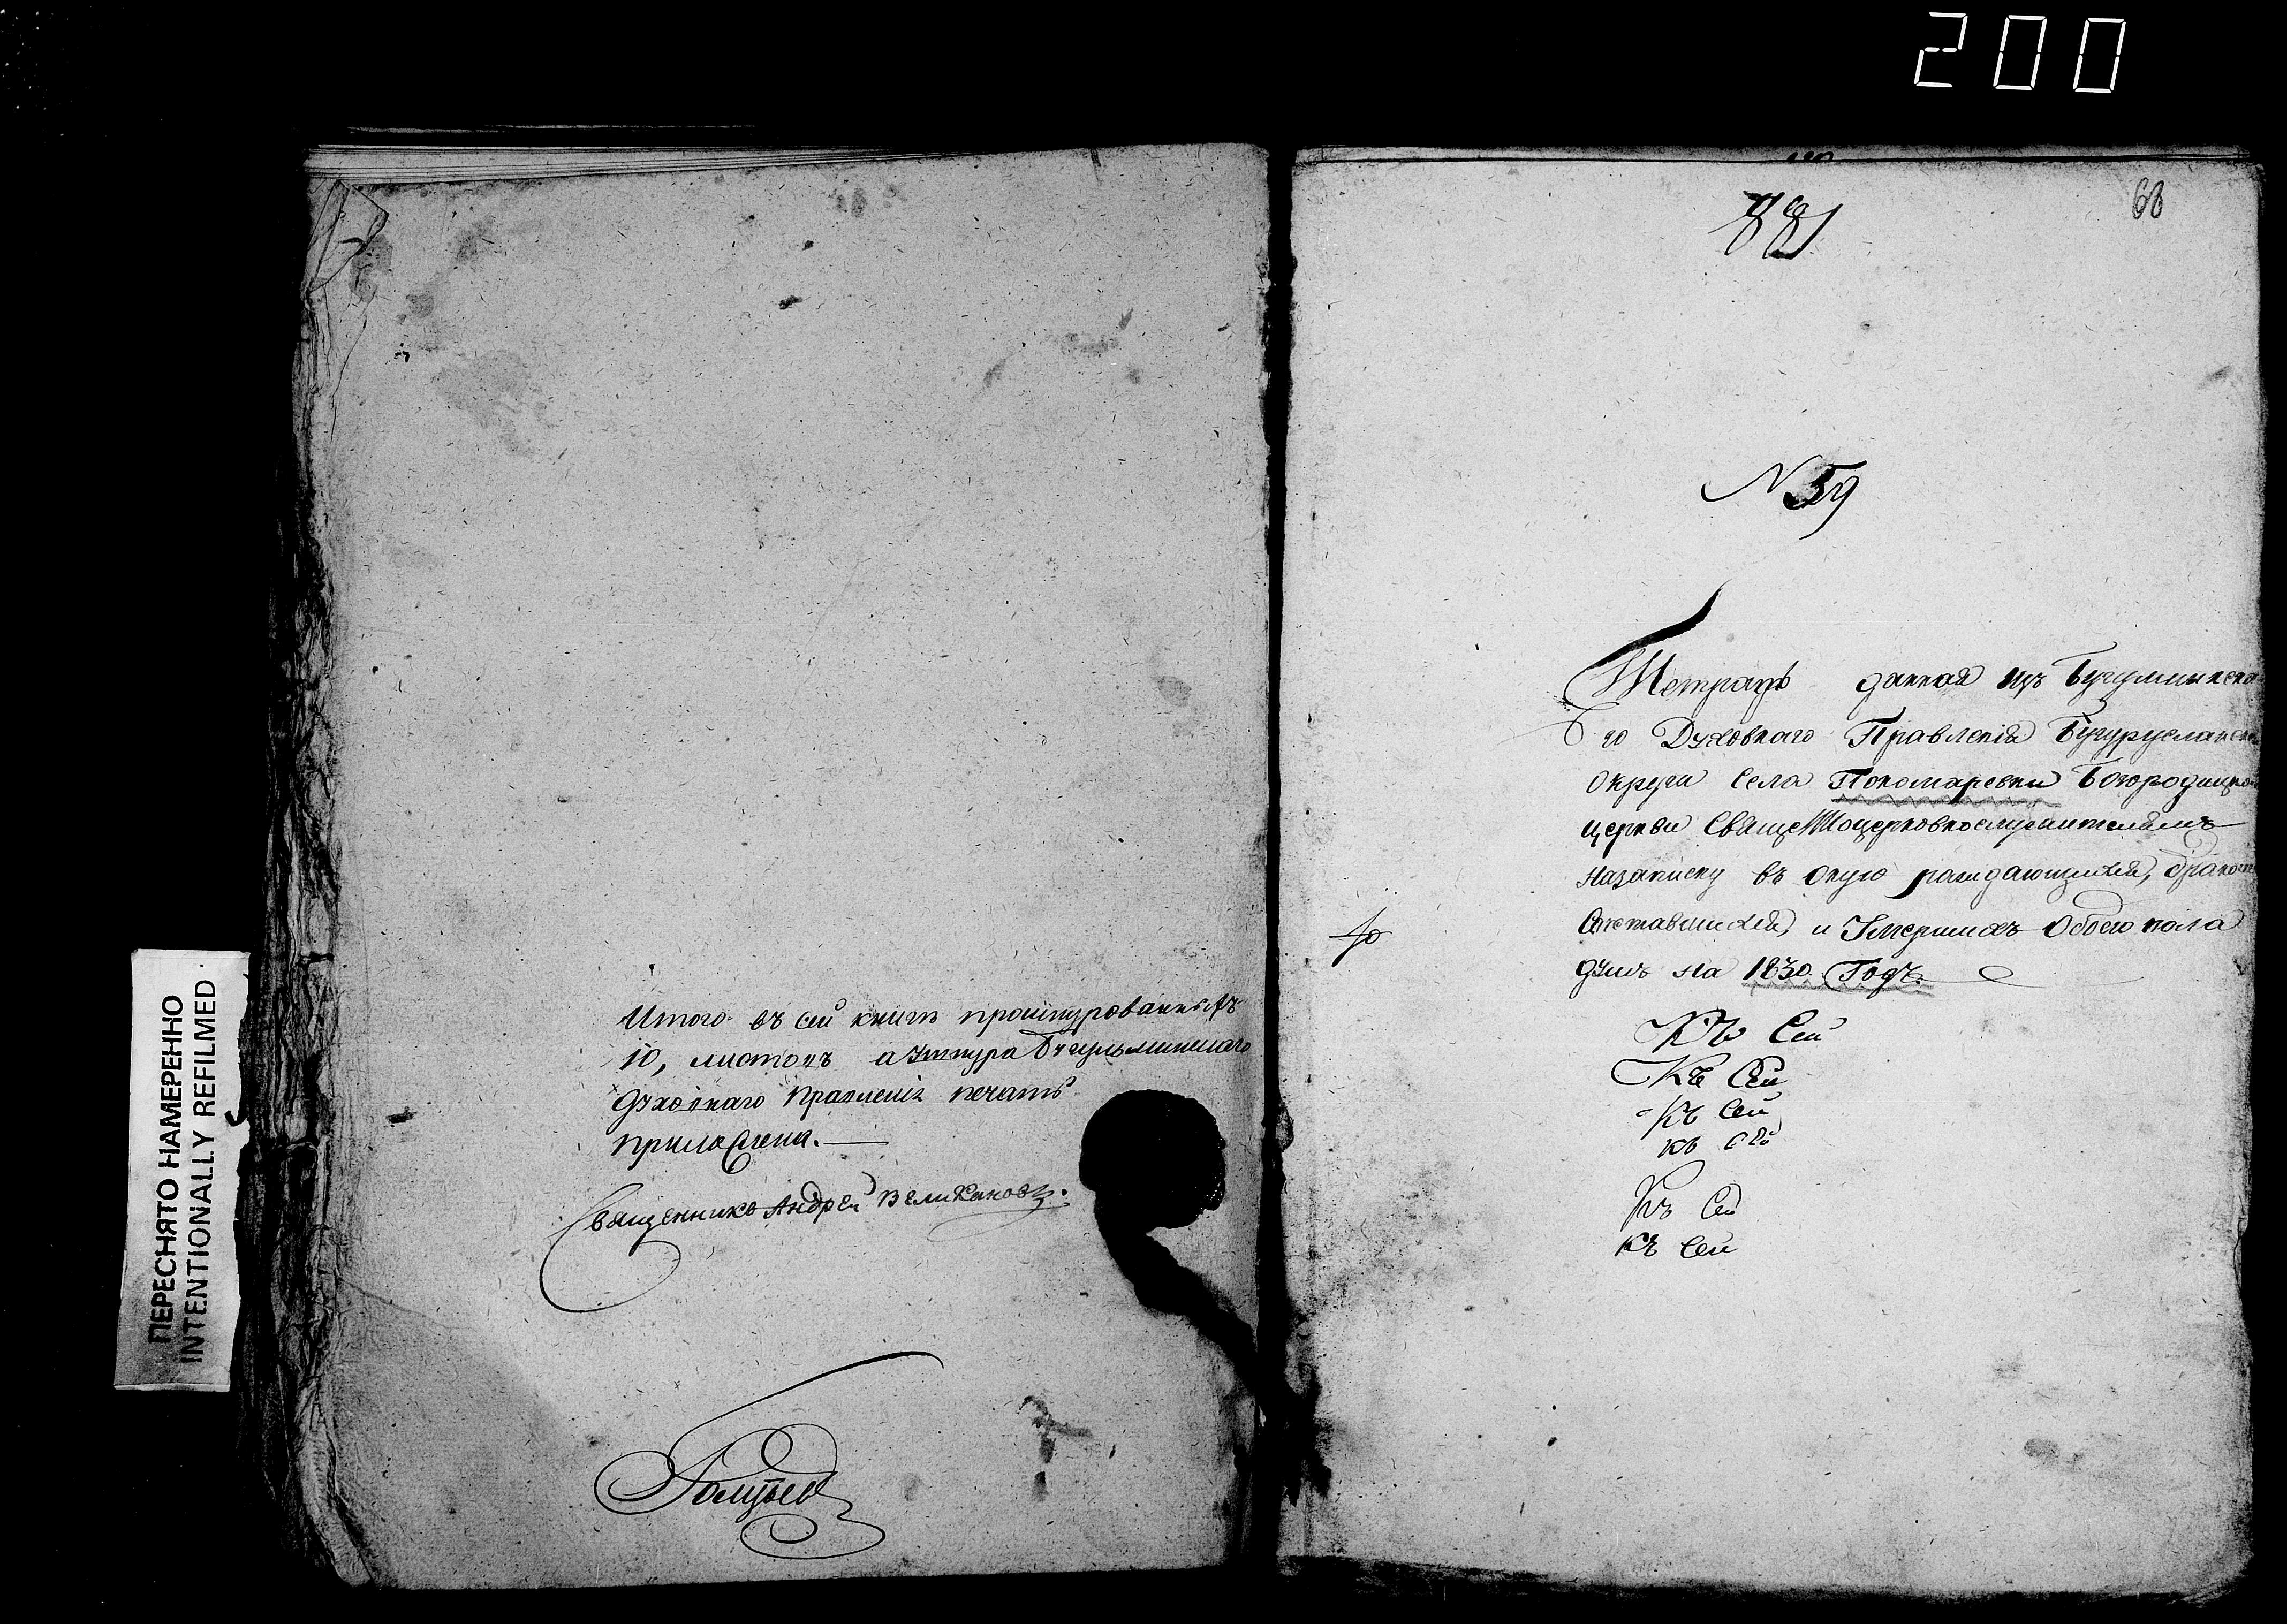 200
ПЕРЕСНЯТО НАМЕРЕННО
INTENTIONALLY REFILMED
Итого въ сей книге прошнурованныхъ
10, листовъ а у шнура Бугульминскаго
духовнаго правленія печать
приложена.
Священникъ Андрей Великановъ.
68
881
N 59
Тетрадь данная изъ Бугулминска
го Духовнаго Правленія Бугурусланск
округи Села Пономаревки Богородицко
церкви Священноцерковнослужителямъ
назаписку въ оную раждающихся, бракомъ
Сочетавшихся, и Умершихъ Обоего пола
душъ на 1830 Годъ.
Къ Сей
Къ Сей
Къ Сей
къ сей
Къ Сей
Къ Сей